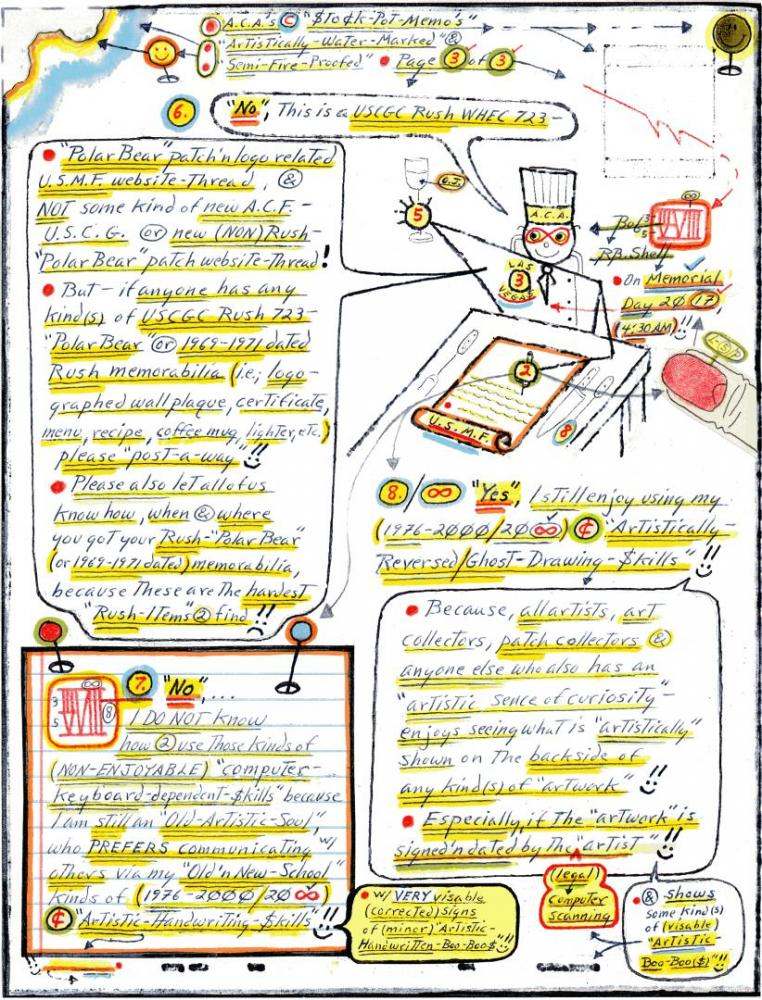 A.C.A.'s © "$To¢k-Pot-Memo's"
"ArTisTically-WaTer-Marked" &
"Semi-Fire-Proofed" • Page 3 of 3
6. "No", This is a USCGC Rush WHEC 723-
• "Polar Bear" paTch'n logo relaTed
U.S.M.F. websiTe-Thread, &
NOT some kind of new A.C.F.-
U.S.C.G. or new (NON) Rush-
"Polar Bear" paTch websiTe-Thread!
• BuT - if anyone has any
kind(s) of USCGC Rush 723-
"Polar Bear" or 1969-1971 daTed
Rush memorabilia (i.e; logo-
graphed wall plaque, cerTificaTe,
menu, recipe, coffee mug, lighTer, eTc.)
please "posT-a-way"!!
• Please also leT all of us
know how, when & where
you goT your Rush-"Polar Bear"
(or 1969-1971 daTed) memorabilia,
because These are The hardesT
"Rush-ITems" 2 find!!
5
A.C.A.
LAS
3
VEGAS
2
U.S.M.F.
8
3
5
∞
R.B. Shelf
• On Memorial
Day 2017,
(4:30AM)!!
8./∞ "Yes", I sTill enjoy using my
(1976-2000/20∞) ¢ "ArTisTically-
Reversed/GhosT-Drawing $kills"!!
• Because, all arTisTs, arT
collecTors, paTch collecTors &
anyone else who also has an
"arTisTic sence of curiosiTy"-
enjoys seeing whaT is "arTisTically"
shown on The backside of
any kind(s) of "arTwork"!!
• Especially, if The "arTwork" is
signed'n daTed by The "arTisT"!!
∞
3
5
8
7. "No",...
I DO NOT know
how 2 use Those kinds of
(NON-ENJOYABLE) "compuTer-
keyboard-dependenT-$kills" because
I am sTill an "Old-ArTisTic-Soul",
who PREFERS communicaTing w/
oThers via my "Old'n New-School"
kinds of (1976-2000/20∞)
¢ "ArTisTic-HandwriTing-$kills"!!
• w/ VERY visable
(correcTed) signs
of (minor) "ArTisTic-
HandwriTTen-Boo-Boo$"!!
(legal)
compuTer
scanning
• & shows
some kind(s)
of (visable)
"ArTisTic-
Boo-Boo($)"!!